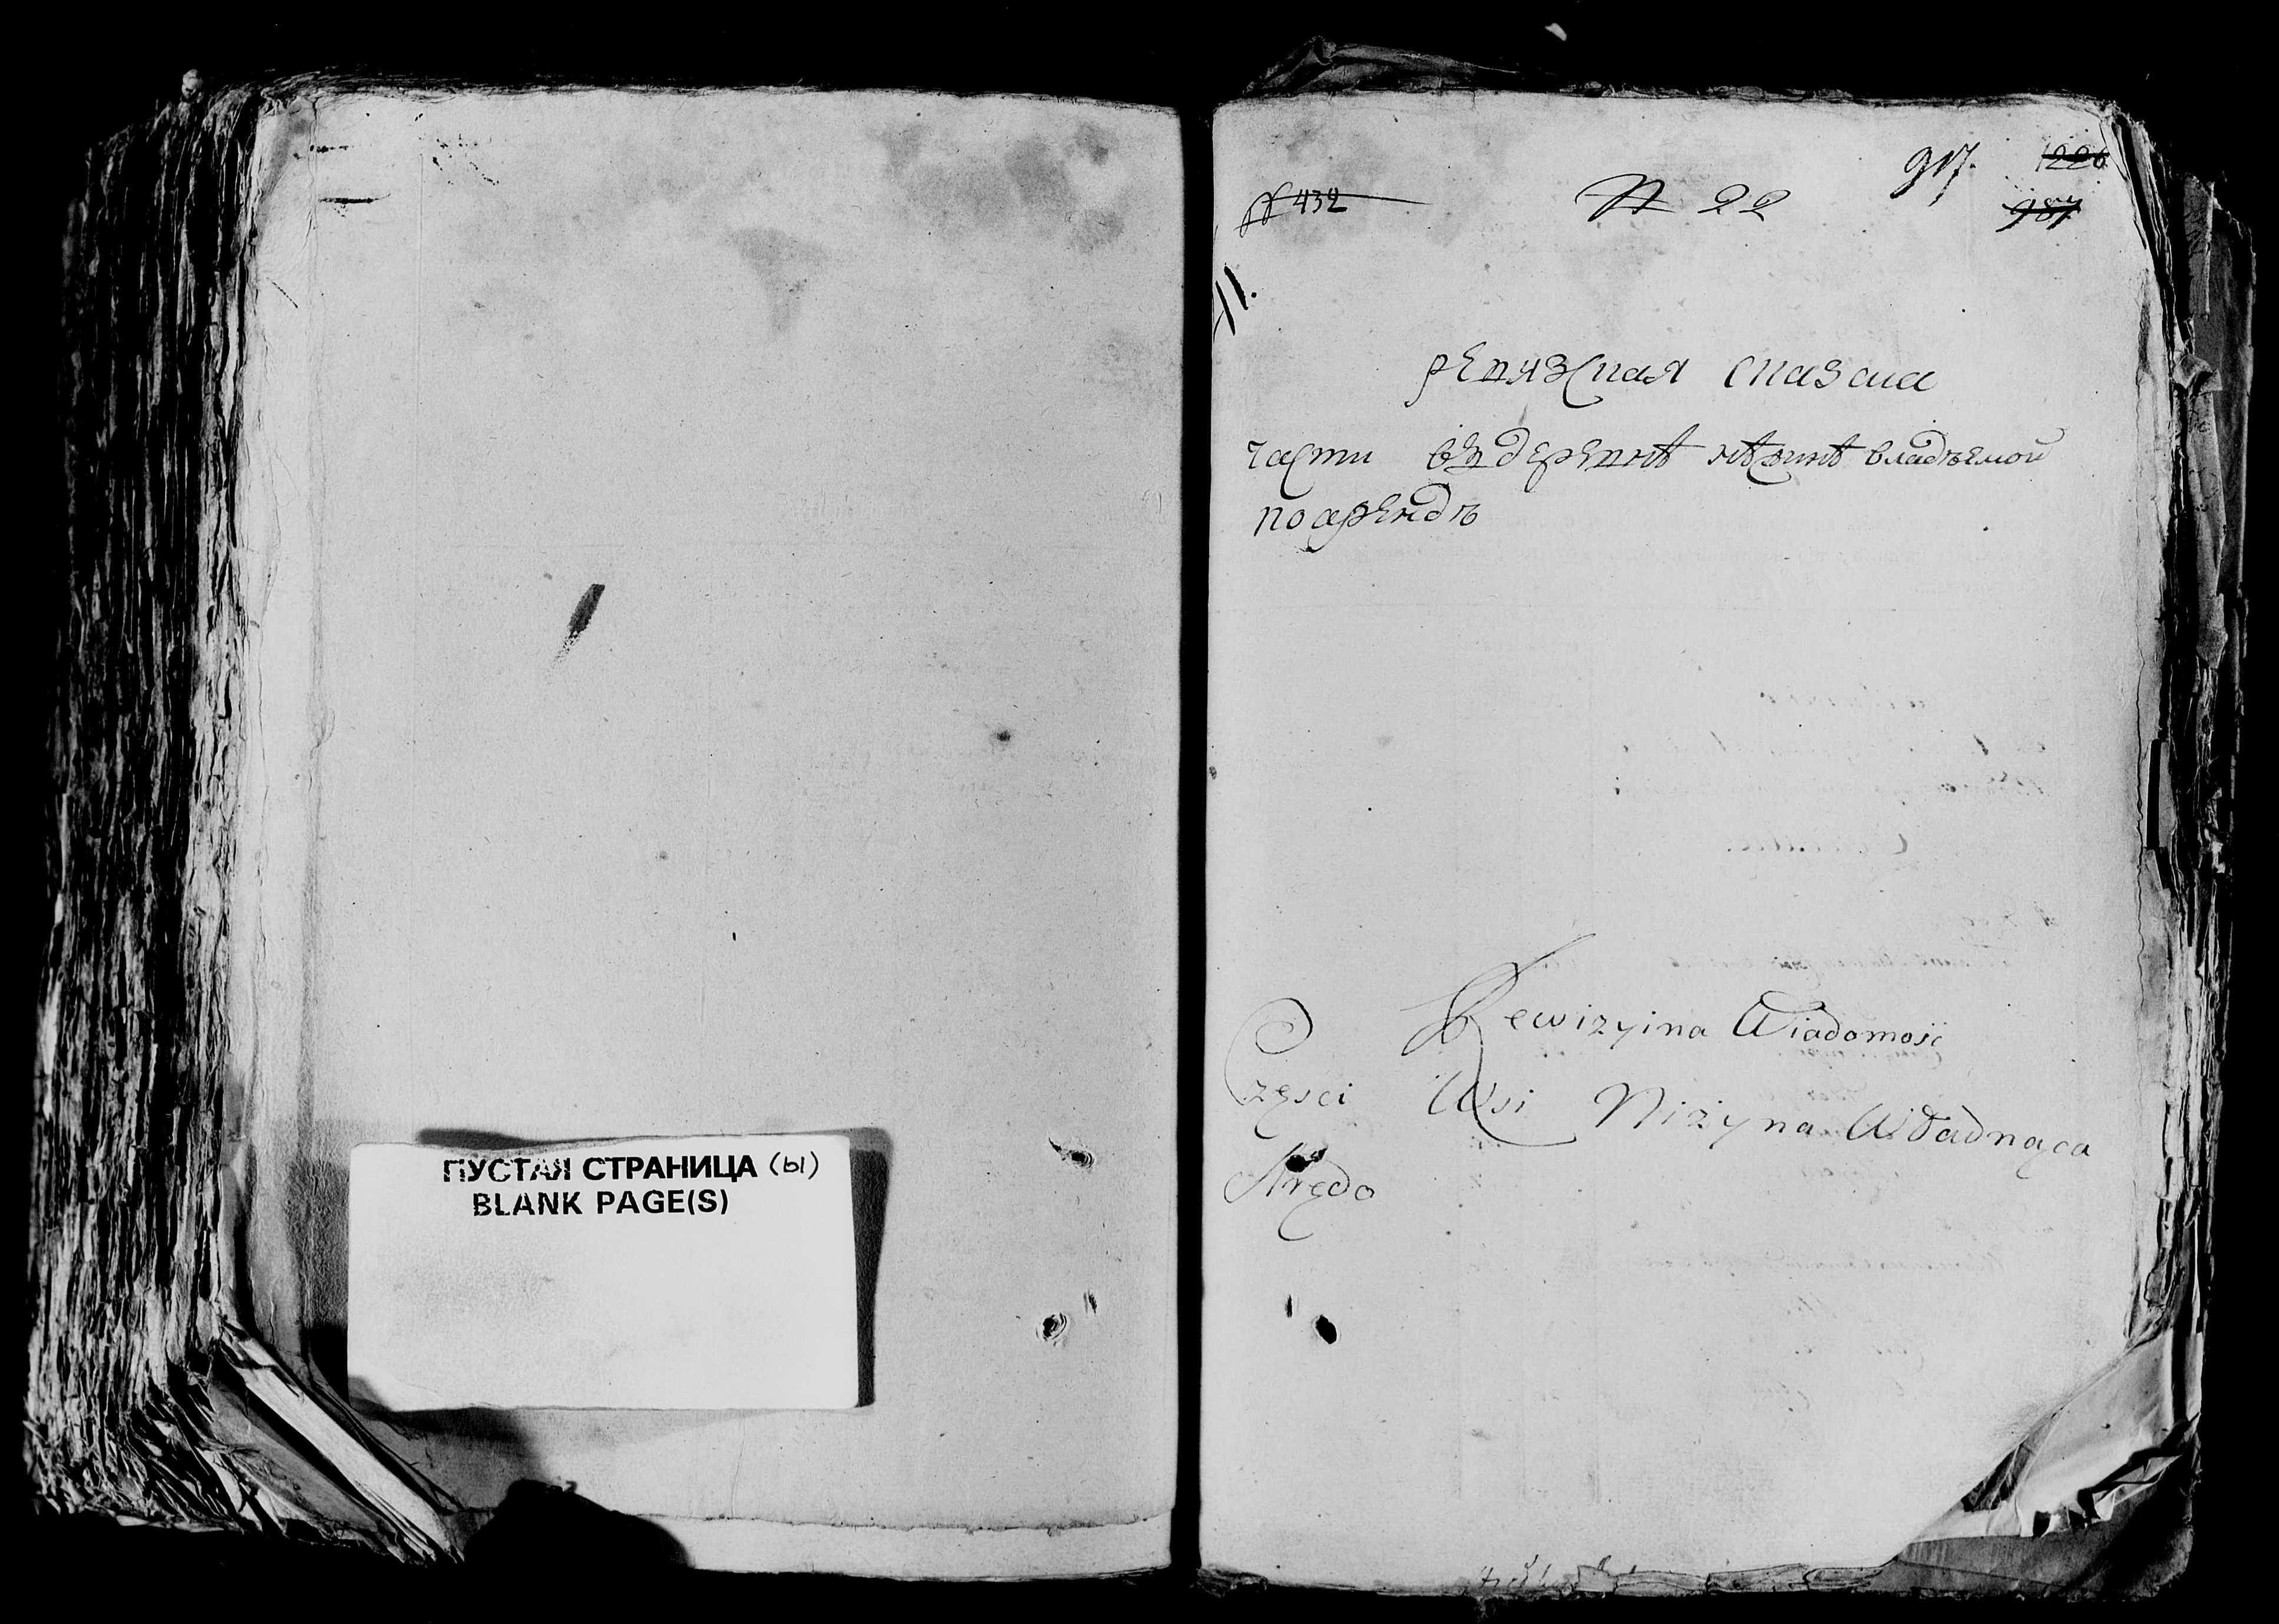 ПУСТАЯ СТРАНИЦА (ы)
BLANK PAGE(S)
917. 1226
№ 432 № 22 987
11.
ревизская сказка
части въ деревнѣ нѣжинѣ владѣемой
по арендѣ
Rewizyina Wiadomość
Części Wsi Niżyna Władnąca
Arędą